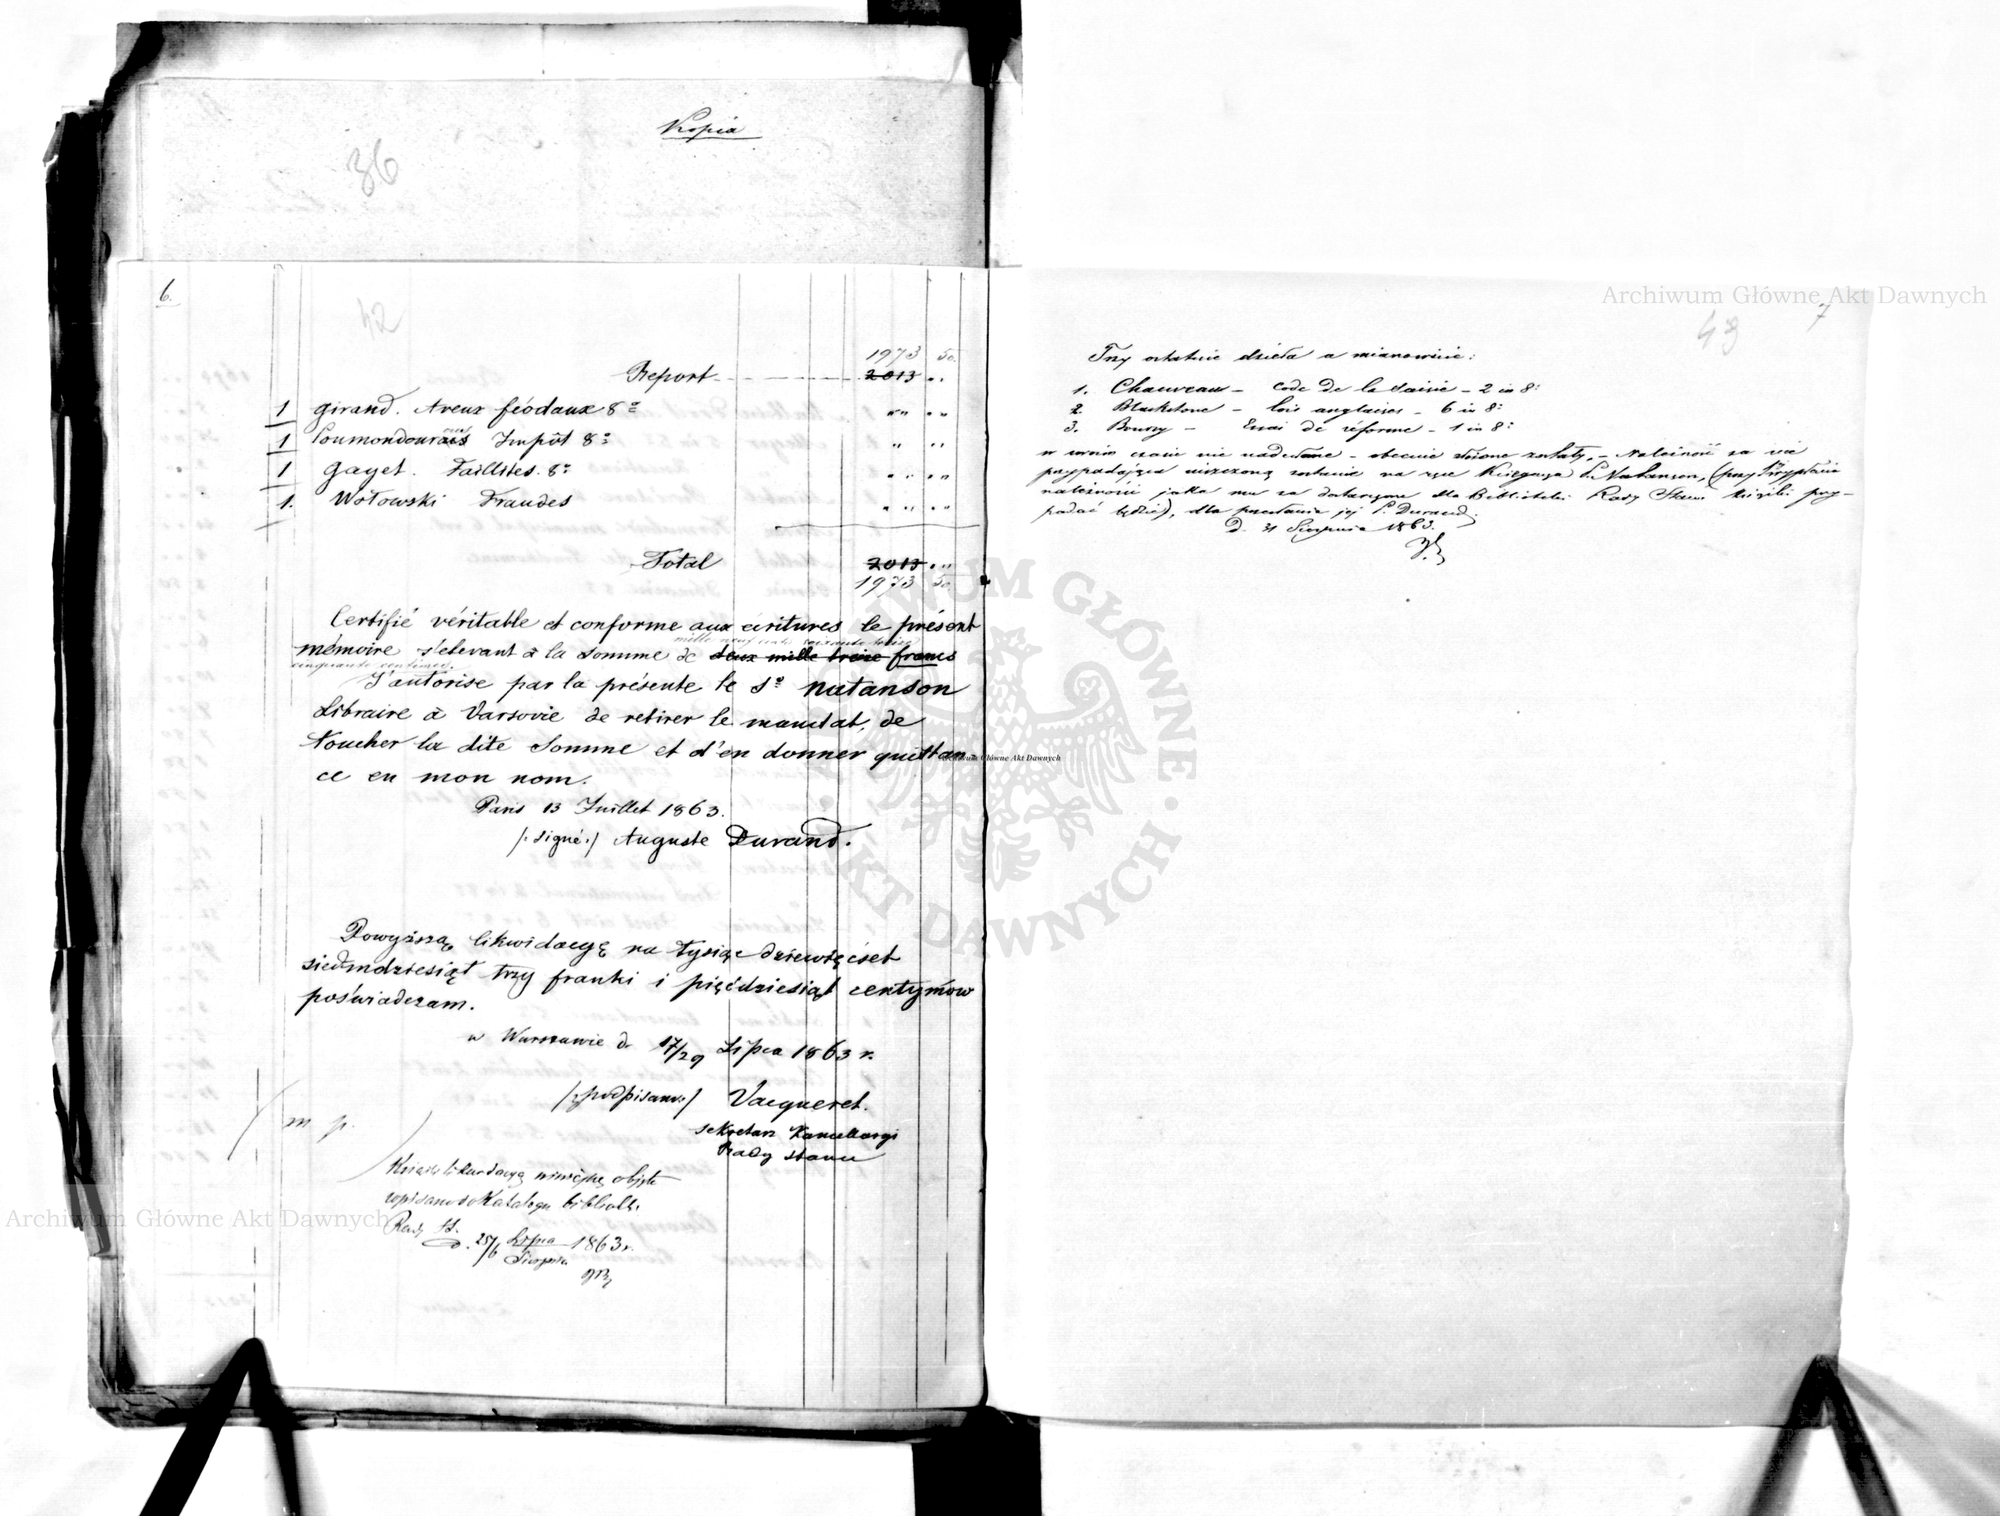 Kopia
36
6.
42
1973 50.
Report 2013 " "
1 Girand. Aveux féodaux 8º " " " "
1 Impôt 8º " " "
1 Gayet. Faillites. 8º " " " "
1. Wołowski Fraudes " " " "
Total 2013 " "
1973 50
Certifié véritable et conforme aux écritures le présent
mille neuf cents soixante treize
mémoire s'élevant à la somme de deux mille treize francs
cinquante centimes.
J'autorise par la présente le Sr Natanson
Libraire à Varsovie de retirer le mandat, de
toucher la dite somme et d'en donner quittan
ce en mon nom.
Paris 13 Juillet 1863.
/:signé:/ Auguste Durand.
Powyższą likwidacyę na tysiąc dziewięćset
siedmdziesiąt trzy franki i pięćdziesiąt centymów
poświadczam.
w Warszawie d. 17/29 Lipca 1863 r.
/podpisano/ Vacqueret.
Sekretarz Kancellaryi
Rady Stanu
m p.
Książki likwidacyą niniejszą objęte
zapisano do Katalogu bibliot.
Rady St.
d. 25/6 Lipca/Sierpnia 1863 r.
7
43
Trzy ostatnie dzieła a mianowicie:
1. Chauveau - Code de la saisie - 2 in 8º
2. Blackstone - lois anglaises - 6 in 8º
3. Bonny - Essai de réforme - 1 in 8º
w swoim czasie nie nadesłane - obecnie złożone zostały, - Należność za nie
przypadająca uiszczoną zostanie na ręce Księgarza P. Natanson, (przy wypłacie
należności jaka mu za dostarczone dla Biblioteki Rady Stanu książki przy-
padać będzie), dla przesłania jej P. Durand.
D. 31 Sierpnia 1863.
Archiwum Główne Akt Dawnych
Archiwum Główne Akt Dawnych
Archiwum Główne Akt Dawnych
ARCHIWUM GŁÓWNE AKT DAWNYCH